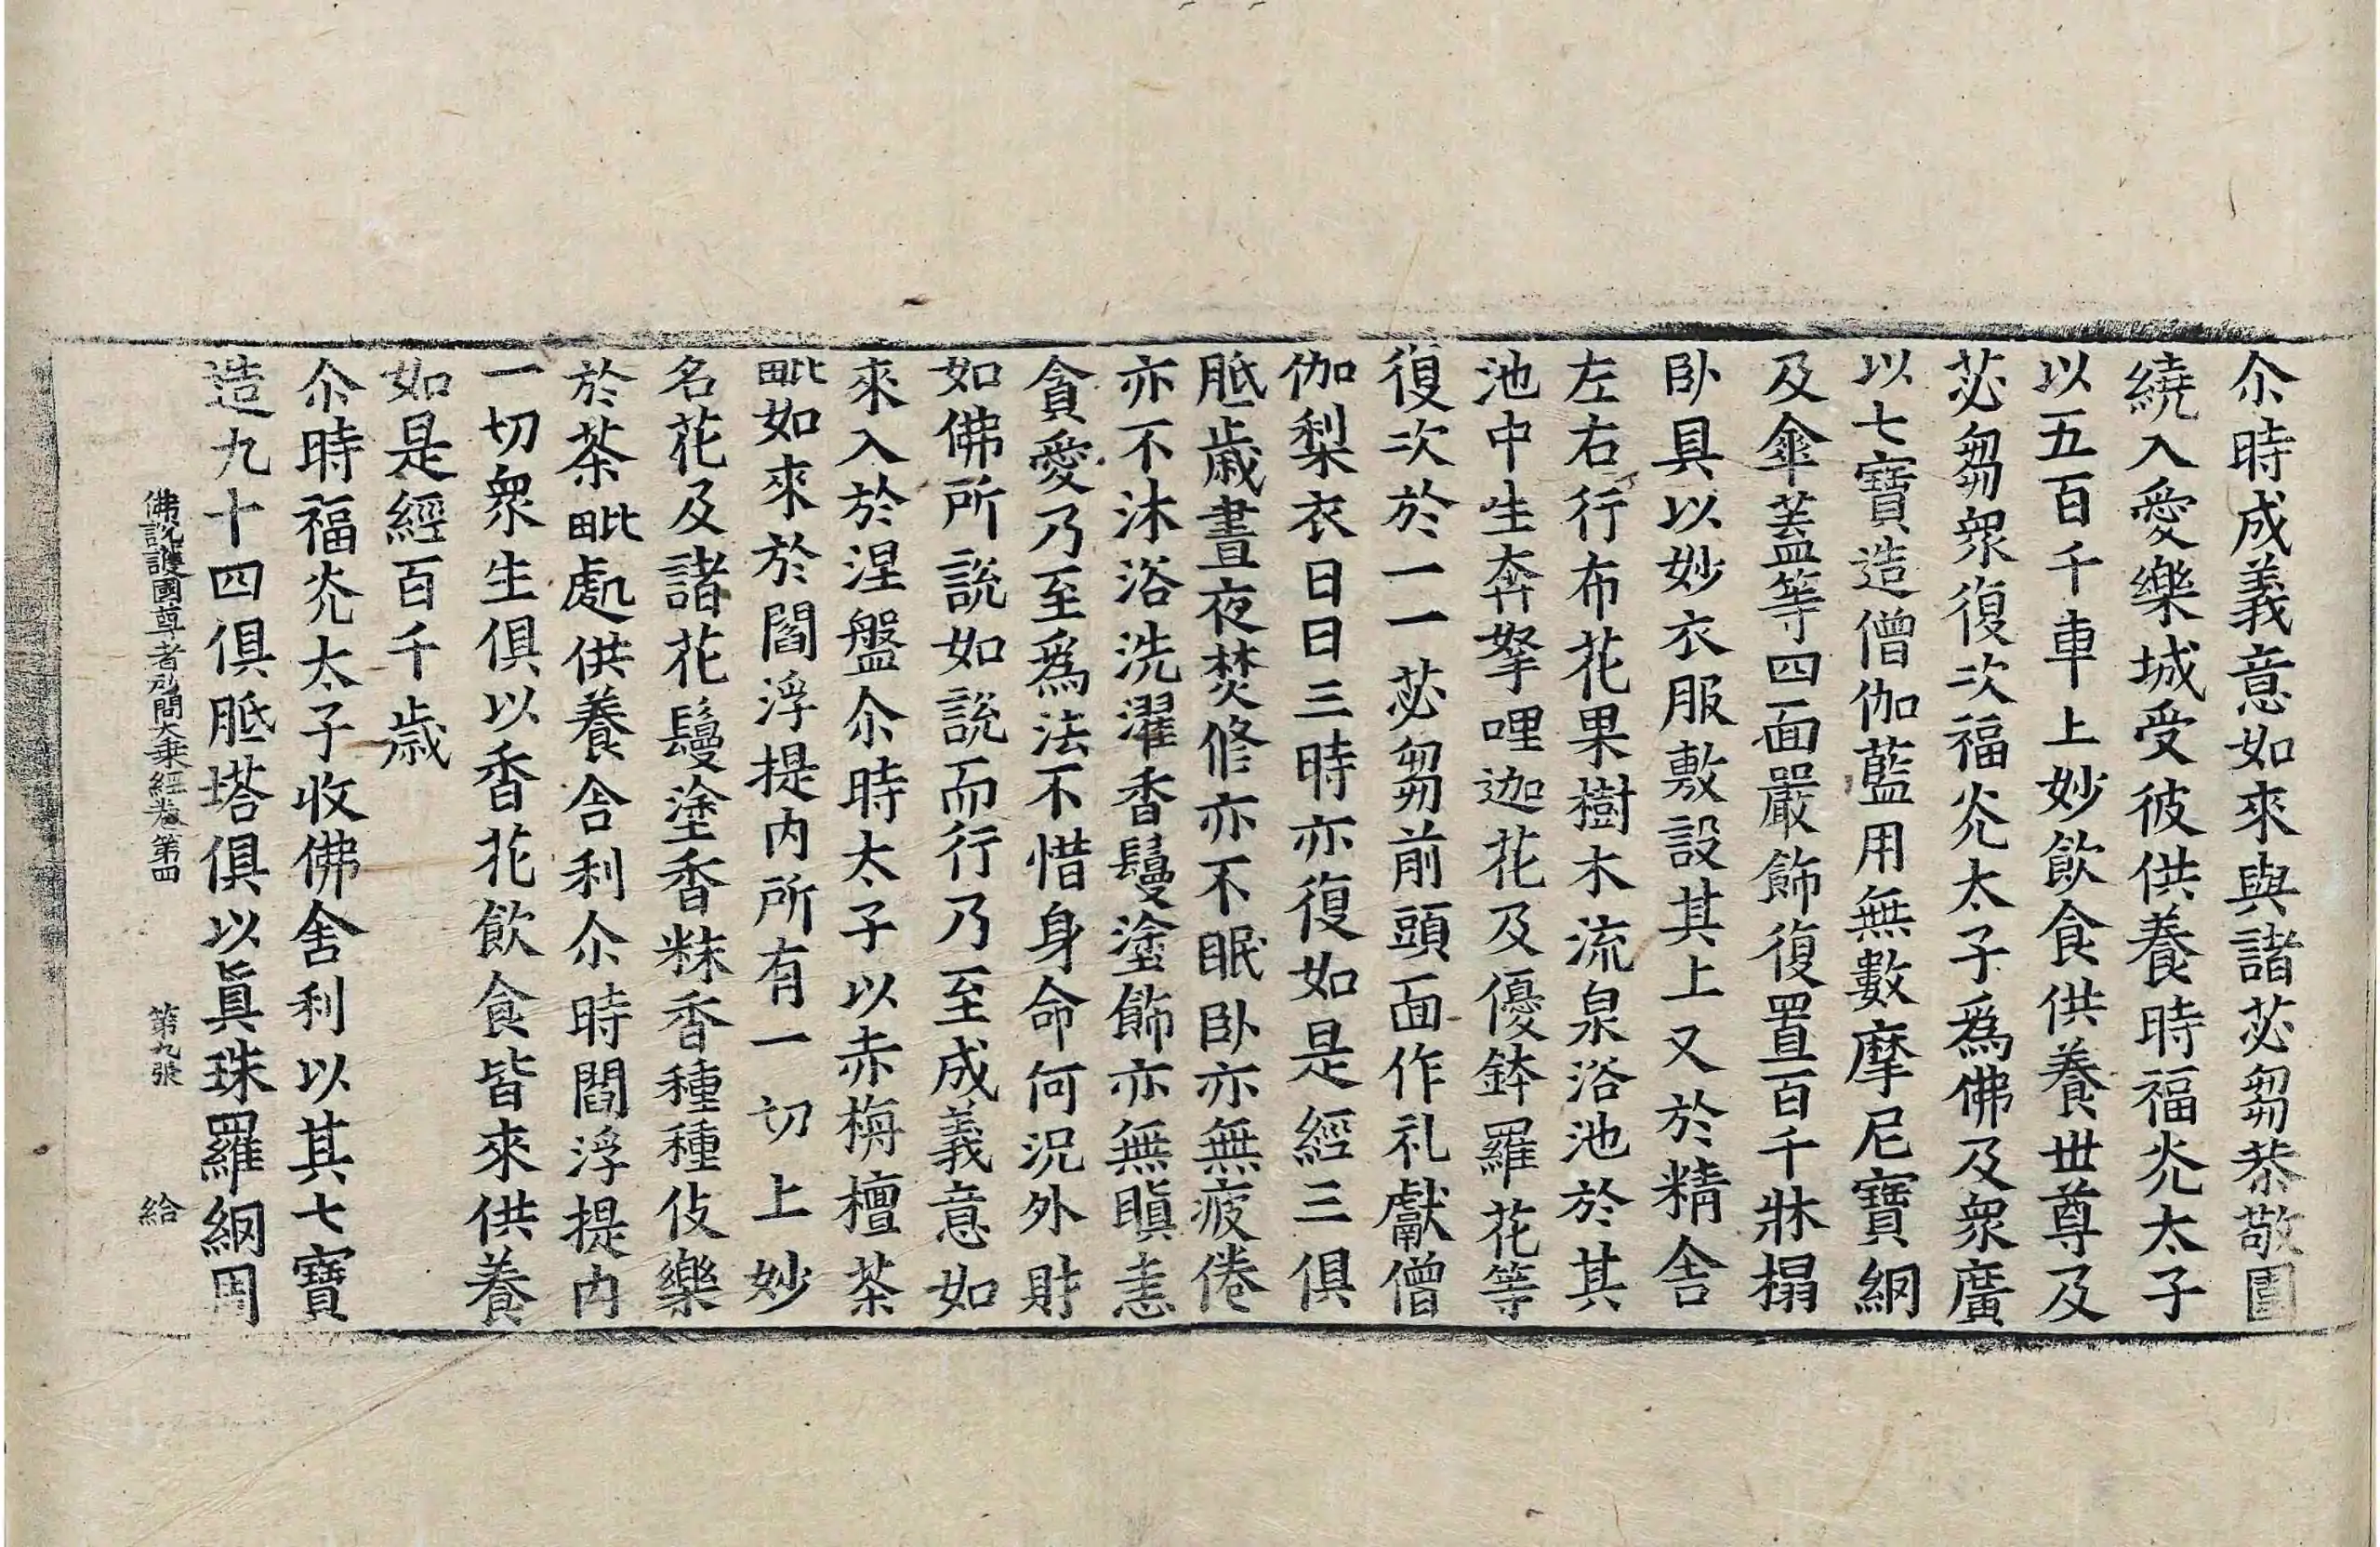 尒時成義意如來與諸苾芻恭敬圍
繞入愛樂城受彼供養時福灮太子
以五百千車上妙飲食供養世尊及
苾芻衆復次福灮太子為佛及衆廣
以七寶造僧伽藍用無數摩尼寶網
及傘蓋等四面嚴飾復置百千牀榻
卧具以妙衣服敷設其上又於精舎
左右行布花果樹木流泉浴池於其
池中生奔拏哩迦花及優鉢羅花等
復次於一一苾芻前頭面作礼獻僧
伽梨衣日日三時亦復如是經三俱
胝歳晝夜焚修亦不眠卧亦無疲倦
亦不沐浴洗濯香鬘塗飾亦無瞋恚
貪愛乃至爲法不惜身命何況外財
如佛所說如說而行乃至成義意如
來入於涅盤尒時太子以赤栴檀茶
毗如來於閻浮提内所有一切上妙
名花及諸花鬘塗香粖香種種伎樂
於茶毗處供養舎利尒時閻浮提内
一切衆生俱以香花飲食皆來供養
如是經百千歳
尒時福灮太子收佛舎利以其七寶
造九十四俱胝塔俱以眞珠羅網用
佛說護國尊者所問大乗經卷第四 第九張 給